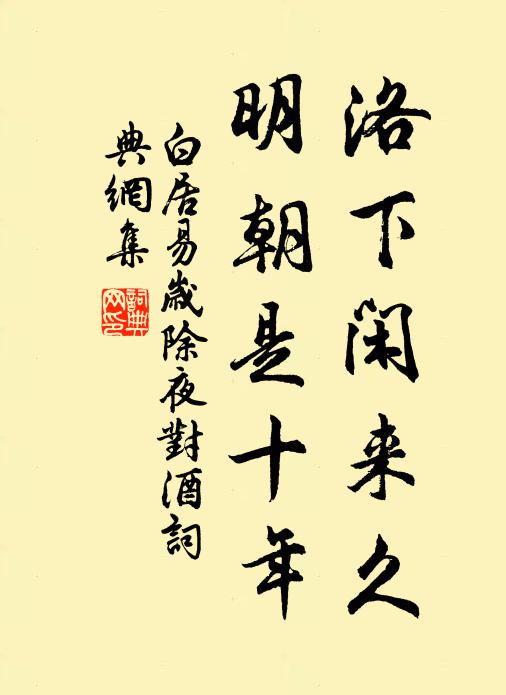 洛下闲来久
明朝是十年
白居易歲除夜對酒詞
典網集
詞典
网印